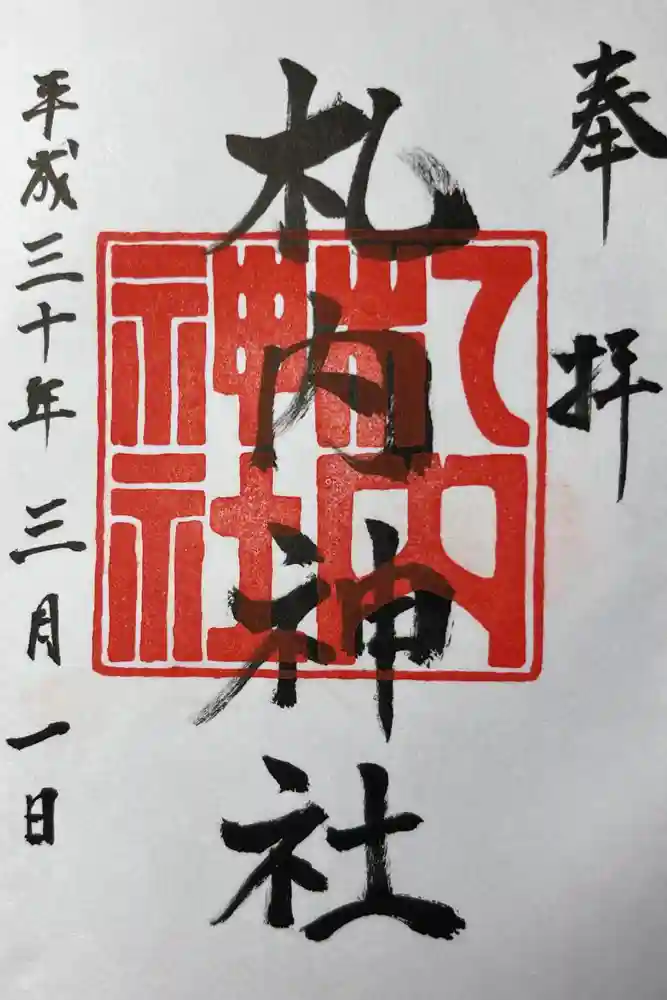 奉拝
札内神社
札内神社
平成三十年三月一日